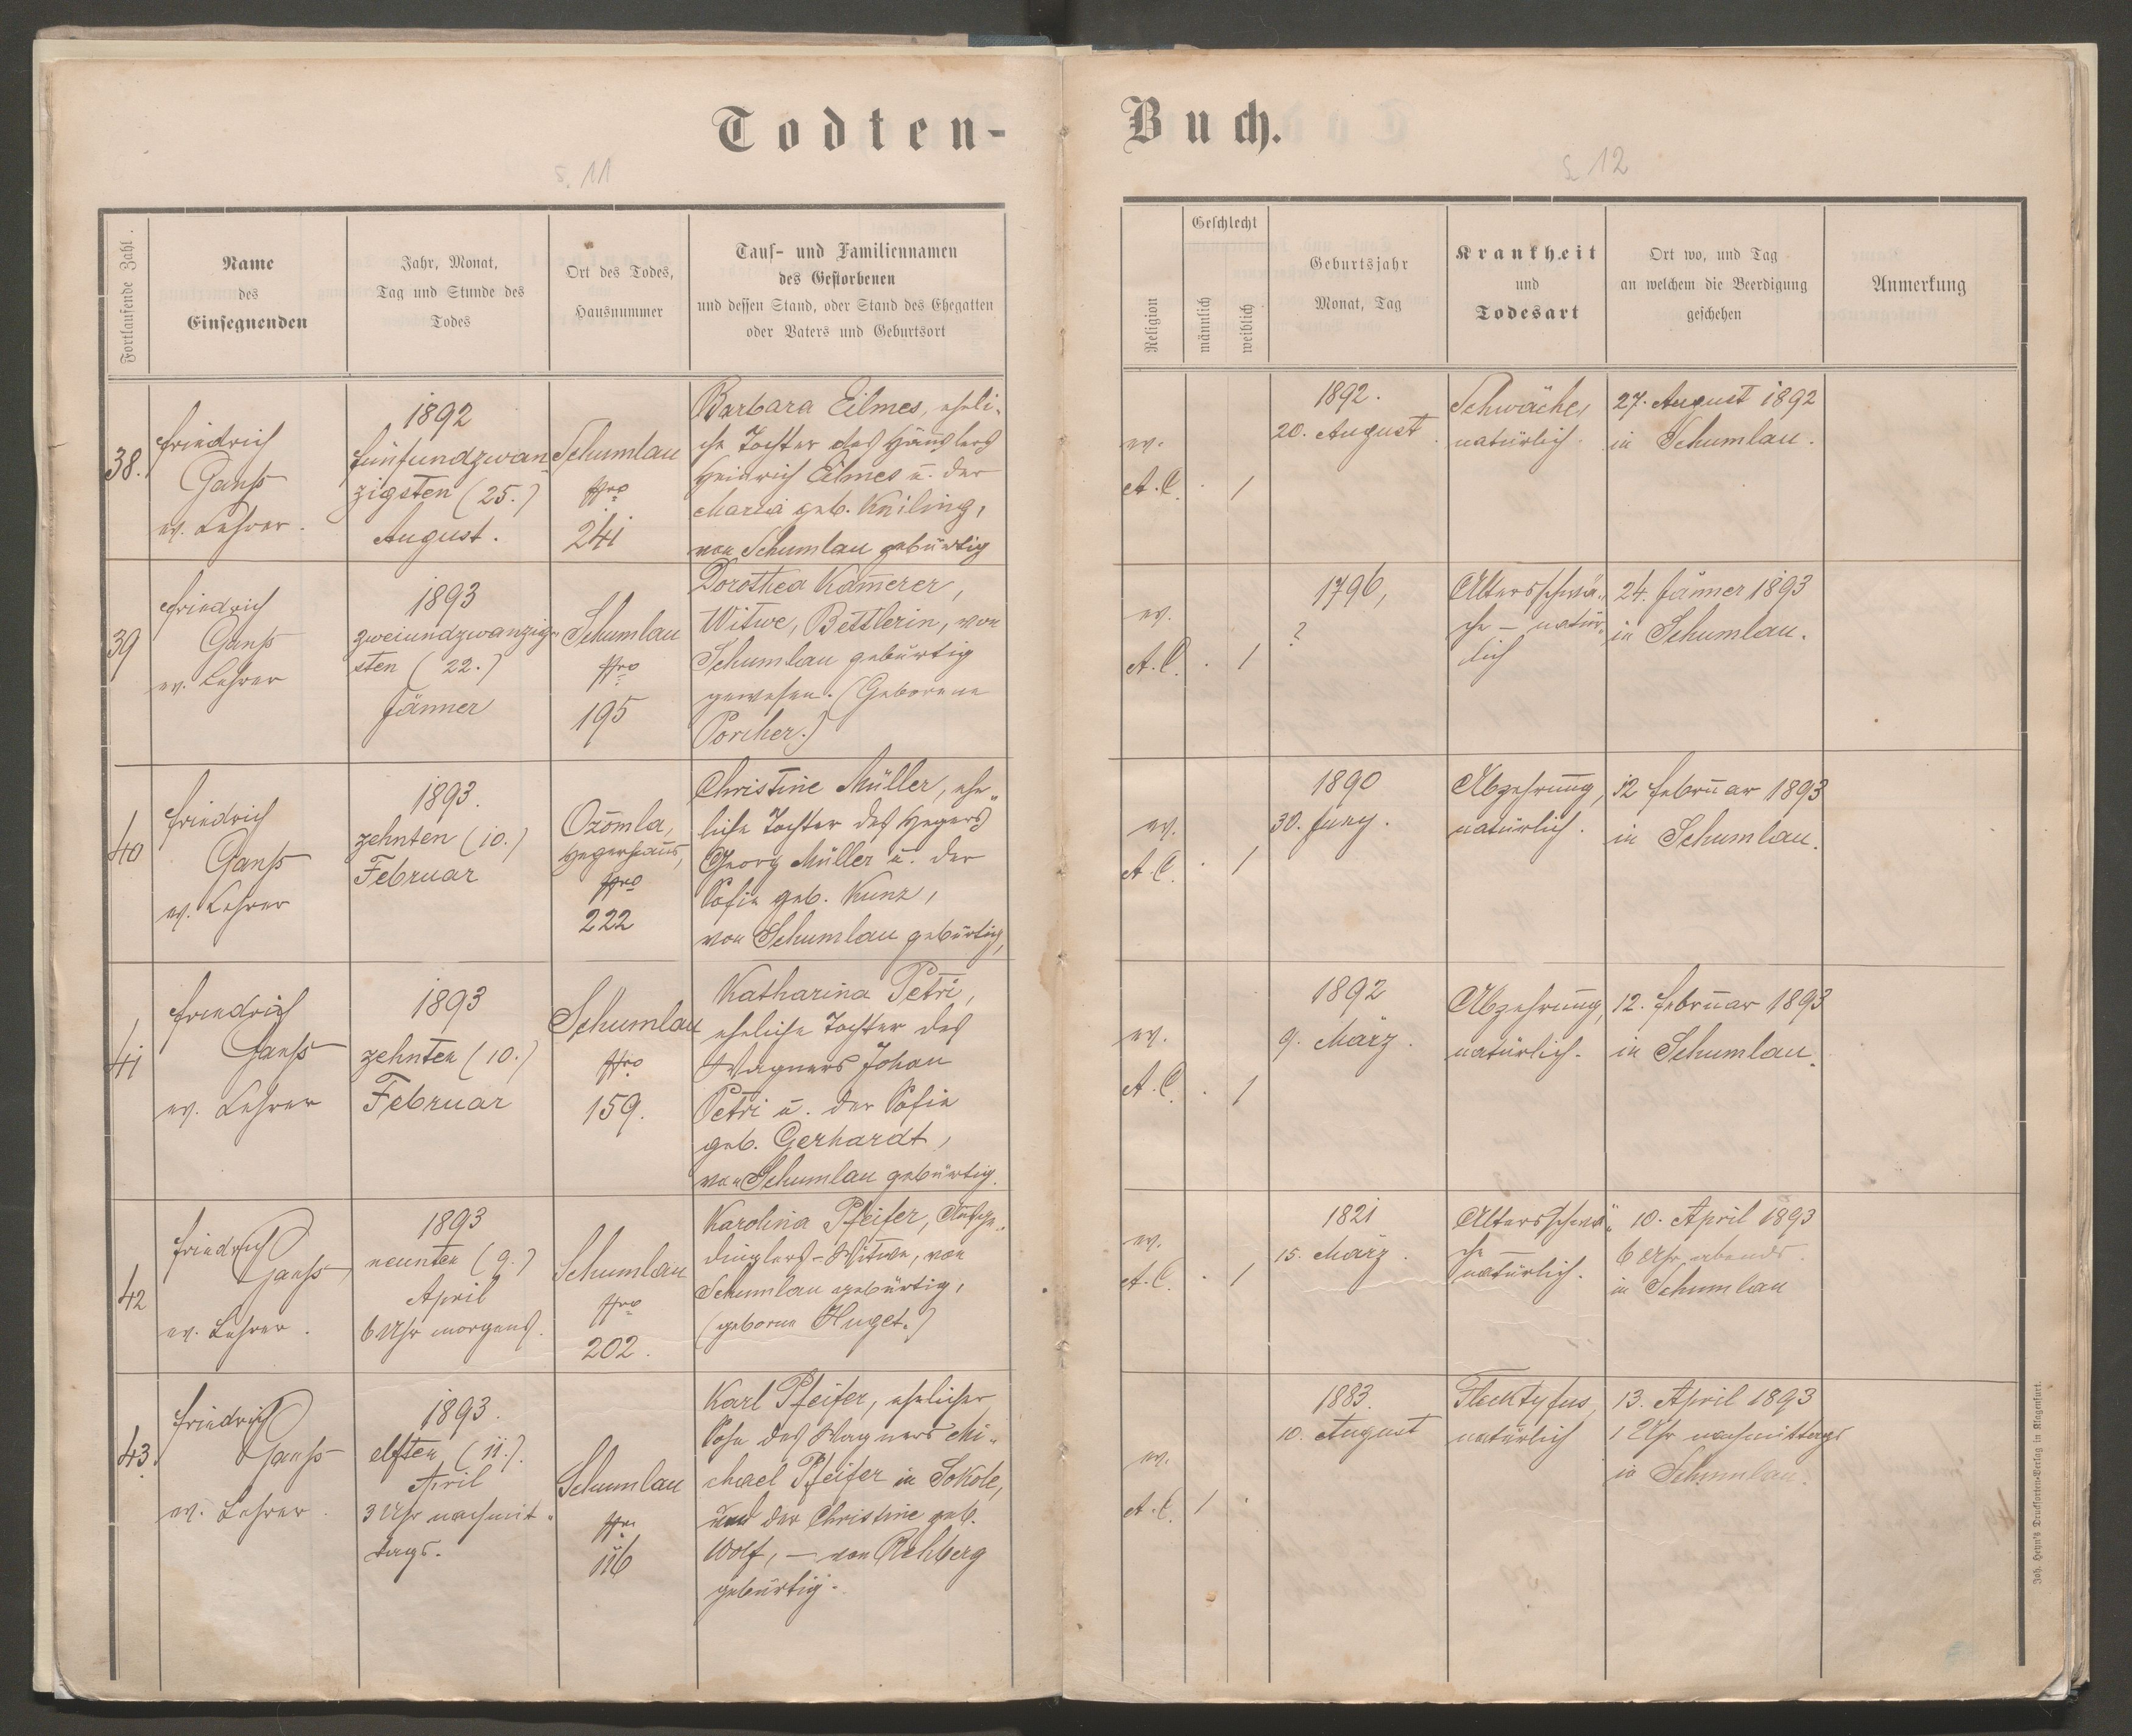 Todten-
Buch.
S. 11
S. 12
Fortlaufende Zahl.
Name
des
Einsegnenden
Jahr, Monat,
Tag und Stunde des
Todes
Ort des Todes,
Hausnummer
Tauf- und Familiennamen
des Gestorbenen
und dessen Stand, oder Stand des Ehegatten
oder Vaters und Geburtsort
Religion
Geschlecht
männlich
weiblich
Geburtsjahr
Monat, Tag
Krankheit
und
Todesart
Ort wo, und Tag
an welchem die Beerdigung
geschehen
Anmerkung
38.
Friedrich
Ganss
ev. Lehrer.
1892
fünfundzwan
zigsten (25.)
August.
Schumlau
Nro
241
Barbara Eilmes, eheli-
che Tochter des Häuslers
Heinrich Eilmes u. der
Maria geb. Kniling,
von Schumlau gebürtig
ev.
A. C.
. 1
1892.
20. August.
Schwäche,
natürlich.
27. August 1892
in Schumlau.
39
Friedrich
Ganss
ev. Lehrer
1893
zweiundzwanzig-
sten (22.)
Jänner
Schumlau
Nro
195
Dorothea Kam̄erer,
Witwe, Bettlerin, von
Schumlau gebürtig
gewesen. (Geborene
Porcher.)
ev.
A. C.
. 1
1796,
?
Altersschwä-
che – natür-
lich
24. Jänner 1893
in Schumlau.
40
Friedrich
Ganss
ev. Lehrer
1893.
zehnten (10.)
Februar
Ozomla,
Hegerhaus,
Nro
222
Christine Müller, ehe-
liche Tochter des Hegers
Georg Müller u. der
Sofie geb. Kunz,
von Schumlau gebürtig,
ev.
A. C.
. 1
1890
30. Juny.
Abzehrung,
natürlich.
12 Februar 1893
in Schumlau.
41
Friedrich
Ganss
ev. Lehrer
1893
zehnten (10.)
Februar
Schumlau
Nro
159.
Katharina Petri,
eheliche Tochter des
Wagners Johan
Petri u. der Sofie
geb. Gerhardt,
von Schumlau gebürtig.
ev.
A. C.
. 1
1892
9. März.
Abzehrung,
natürlich.
12. Februar 1893
in Schumlau.
42
Friedrich
Ganss
ev. Lehrer.
1893
neunten (9.)
April
6 Uhr morgens.
Schumlau
Nro
202.
Karolina Pfeifer, Ausge-
dinglers-Witwe, von
Schumlau gebürtig,
(geborne Huget.)
ev.
A. C.
. 1
1821
15. März.
Altersschwä-
che
natürlich.
10. April 1893
6 Uhr abends.
in Schumlau
43.
Friedrich
Ganss
ev. Lehrer.
1893.
elften (11.).
April
3 Uhr nachmit-
tags.
Schumlau
Nro
116
Karl Pfeifer, ehelicher
Sohn des Wagners Mi-
chael Pfeifer in Sokole,
und der Christine geb.
Wolf, – von Rehberg
gebürtig.
ev.
A. C.
1 .
1883.
10. August
Flecktyfus,
natürlich
13. April 1893
1 Uhr nachmittags
in Schumlau.
Joh. Heyn's Drucksorten-Verlag in Klagenfurt.